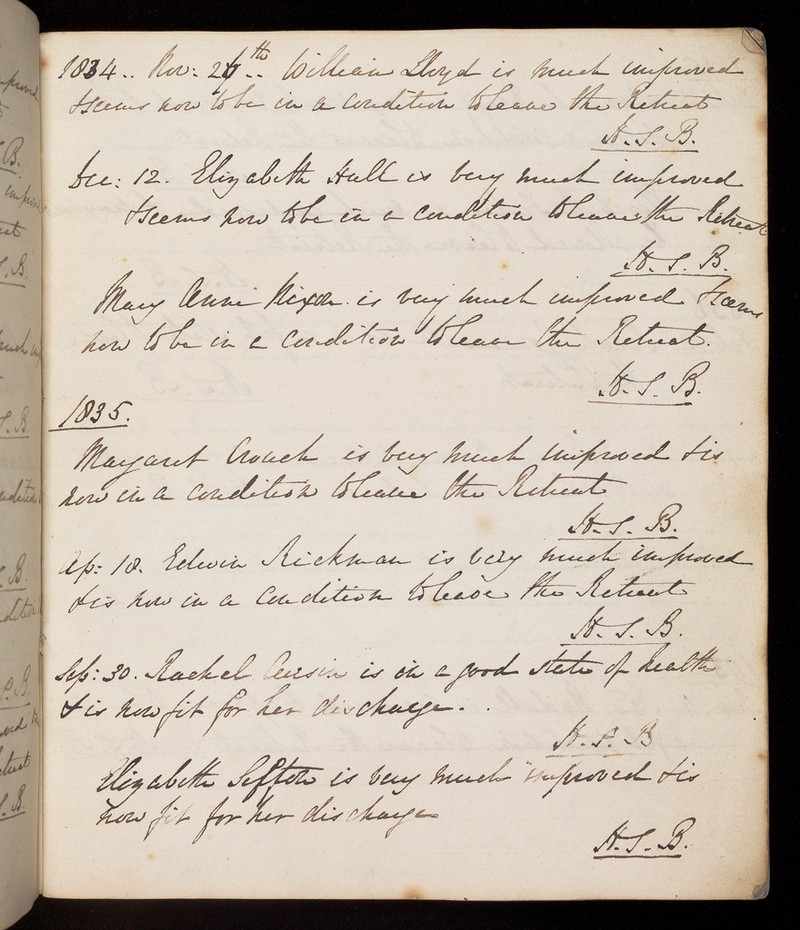 1834.. Nov: 26th.. William Lloyd is much improved
& seems now to be in a condition to leave the Retreat
H. S. B.
Dec: 12. Elizabeth Hall is very much improved
& seems now to be in a condition to leave the Retreat
H. S. B.
Mary Anne Nixon is very much improved & seems
now to be in a condition to leave the Retreat.
H. S. B.
1835.
Margaret Crouch is very much improved & is
now in a condition to leave the Retreat
H. S. B.
Ap: 18. Edwin Rickman is very much improved
& is now in a condition to leave the Retreat
H. S. B.
Sep: 30. Rachel is in a good state of health
& is now fit for her discharge.
H. S. B
Elizabeth Sefton is very much improved & is
now fit for her discharge
H. S. B.